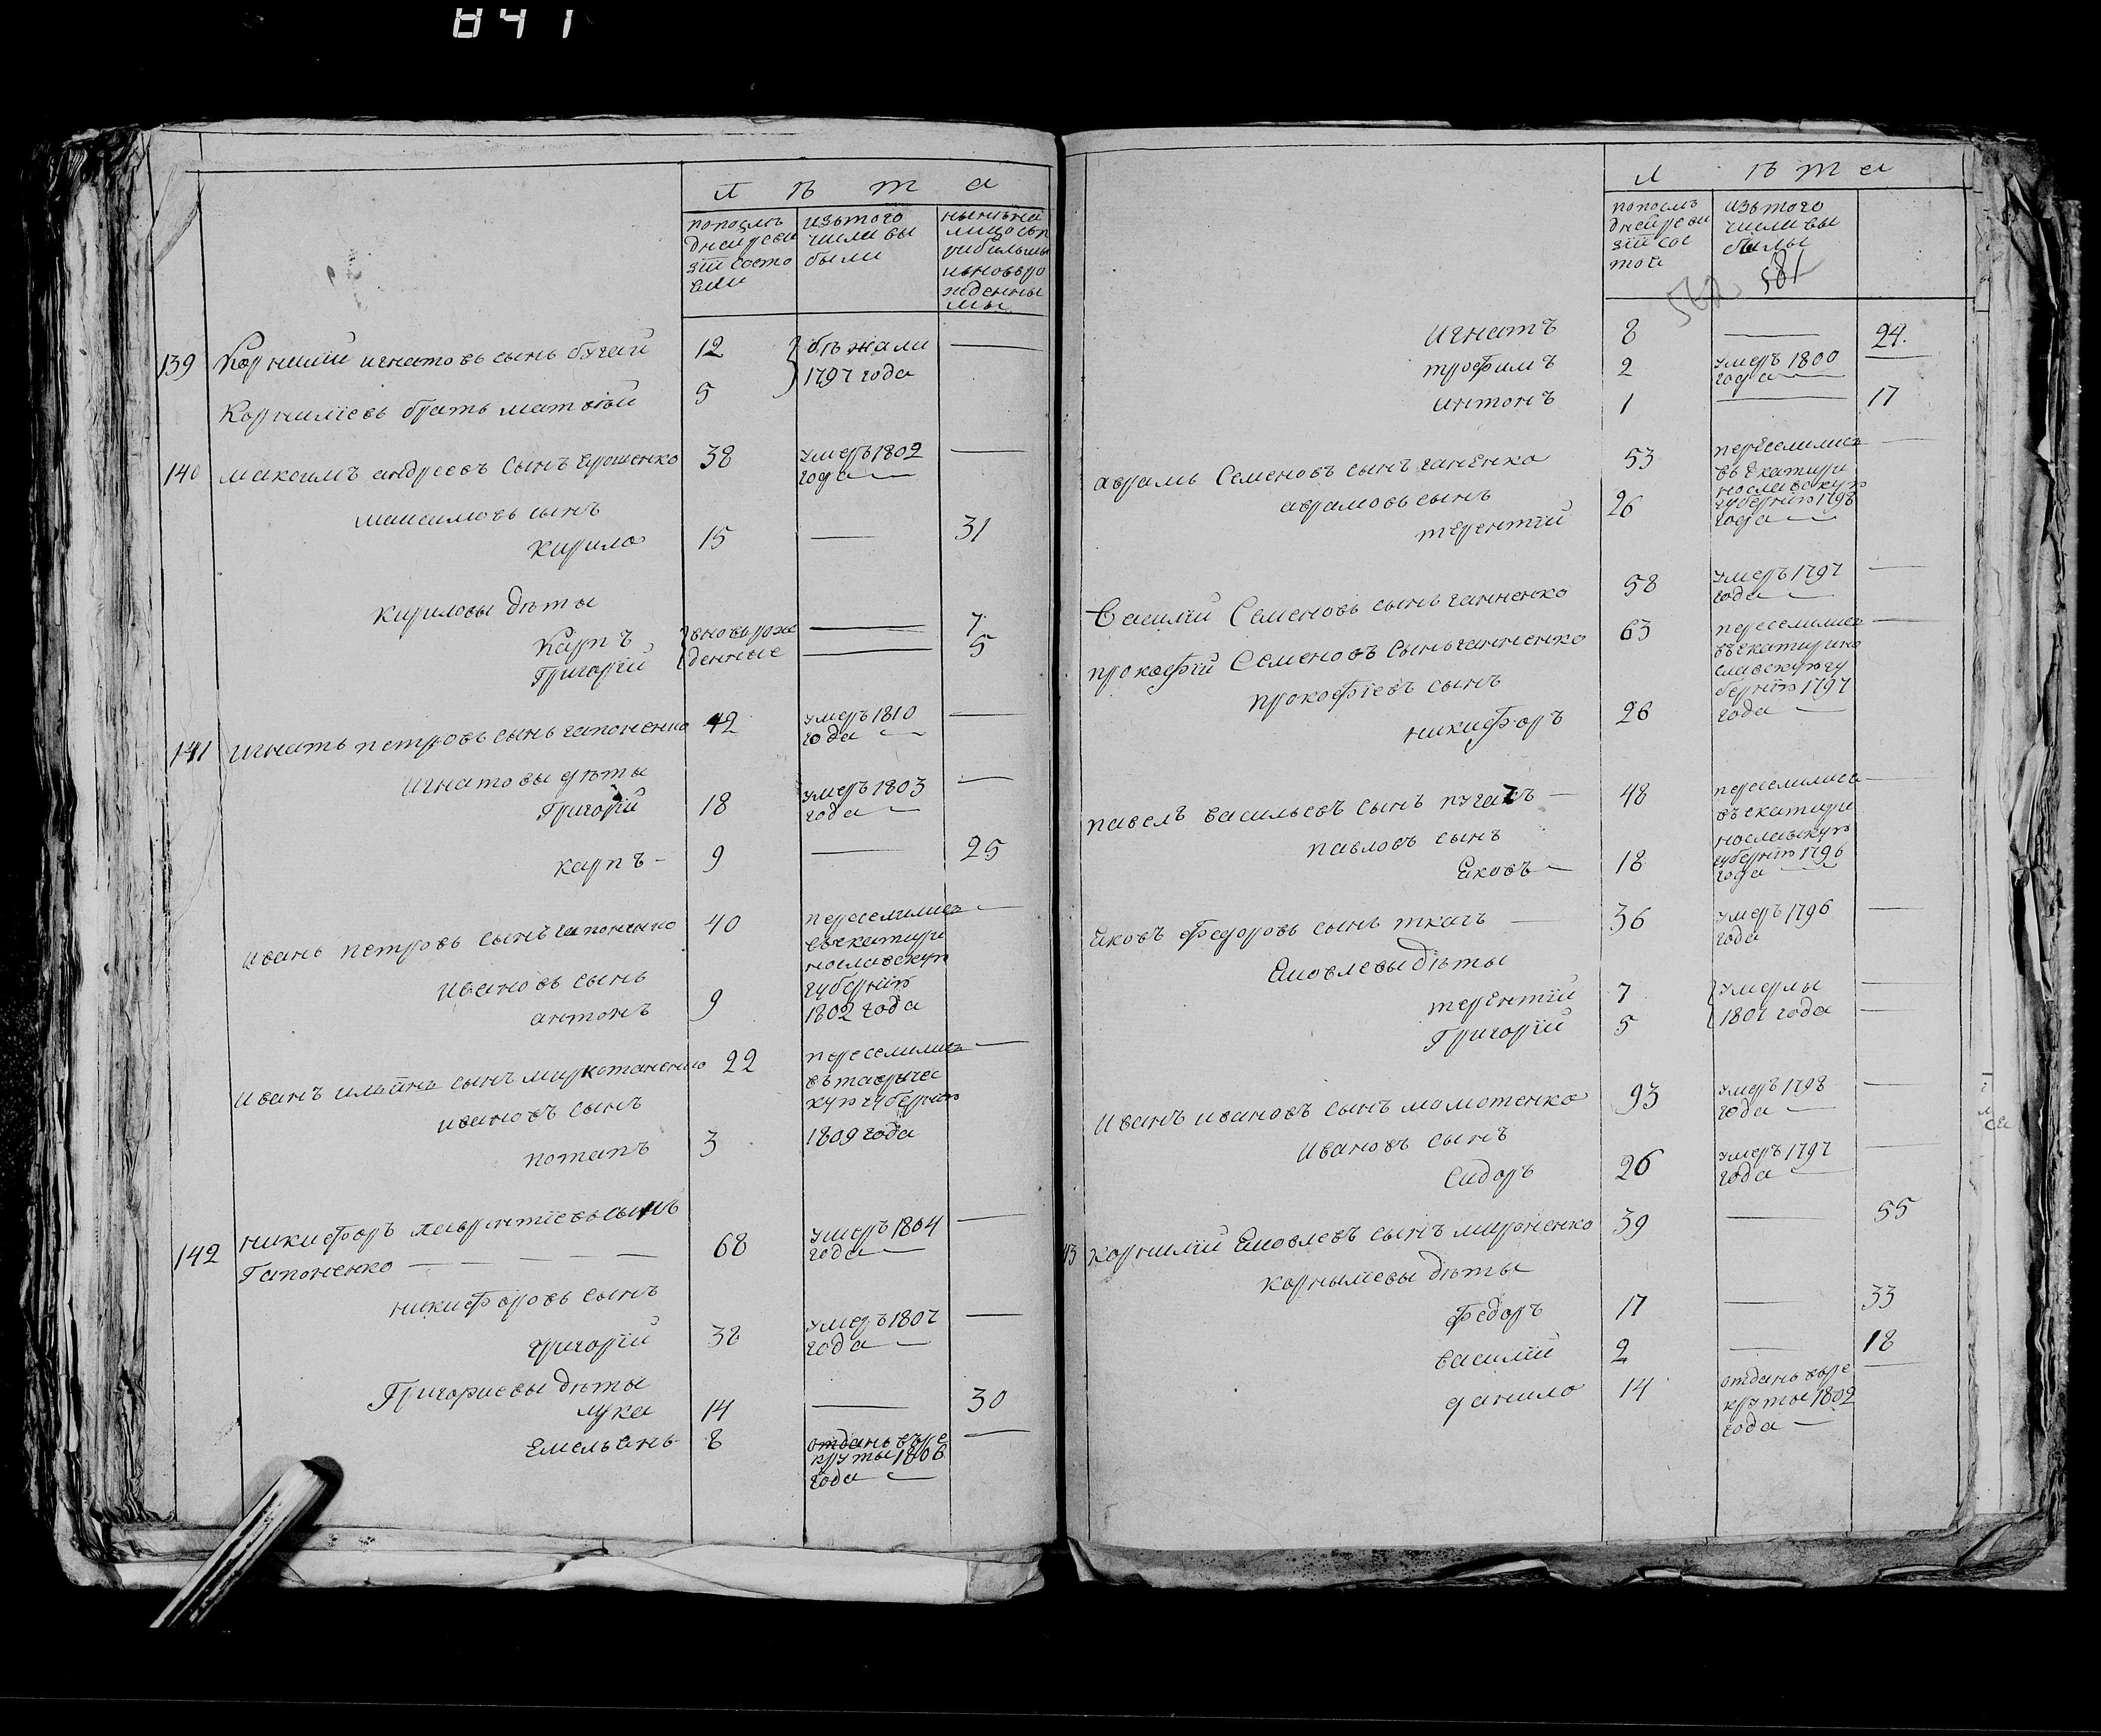 841
Л ѣ т а
попослѣ
дней реви
зіи состо
яли
изътого
числа вы
были
нынѣ на
лицо съ
прибылыми
ивновь ро
жденны
ми
139 Корнилій игнатовъ сынъ бугай 12 бѣжали
1797 года
Корниліевъ братъ матвій 5
140 максимъ андреевъ сынъ ярошенко 38 умеръ 1802
года
максимовъ сынъ
кирило 15 31
кириловы дѣты
Карпъ вновь рож 7
Григорій денные 5
141 игнатъ петровъ сынъ гапоненко 42 умеръ 1810
года
игнатовы дѣты
Григорій 18 умеръ 1803
года
карпъ 9 25
иванъ петровъ сынъ гапоненко 40 переселились
въекатери
нославскую
губернію
1802 года
ивановъ сынъ
антонъ 9
иванъ ильинъ сынъ 22 переселились
въ тавричес
кую губернію
1809 года
ивановъ сынъ
потапъ 3
142 никифоръ лаврентіевъ сынъ
Гапоненко 68 умеръ 1804
года
никифоровъ сынъ
григорій 38 умеръ 1807
года
Григориевы дѣты
лука 14 30
Емельянъ 8 отданъ въре
круты 1806
года
Л ѣ т а
попослѣ
дней реви
зіи сос
тоя
изътого
числа вы
были
562 581
игнатъ 8 24.
трофимъ 2 умеръ 1800
года
антонъ 1 17
аврамъ Семеновъ сынъ ганенко 53 переселились
въ Екатери
нославскую
губернію 1798
года
аврамовъ сынъ
терентій 26
Василій Семеновъ сынъ ганненко 58 умеръ 1797
года
прокофій Семеновъ сынъ ганненко 63 переселились
въекатерино
славскую гу
бернію 1797
года
прокофіевъ сынъ
никифоръ 26
павелъ васильевъ сынъ пугачъ 48 переселились
въекатери
нославскую
губернію 1796
года
павловъ сынъ
Яковъ 18
Яковъ федоровъ сынъ ткачъ 36 умеръ 1796
года
Яковлевы дѣты
терентій 7 умерлы
Григорій 5 1807 года
иванъ ивановъ сынъ момотенко 93 умеръ 1798
года
ивановъ сынъ
Сидоръ 26 умеръ 1797
года
43 корнилій Яковлевъ сынъ мироненко 39 55
корнылевы дѣты
федоръ 17 33
василій 2 18
данило 14 отданъ въре
круты 1802
года